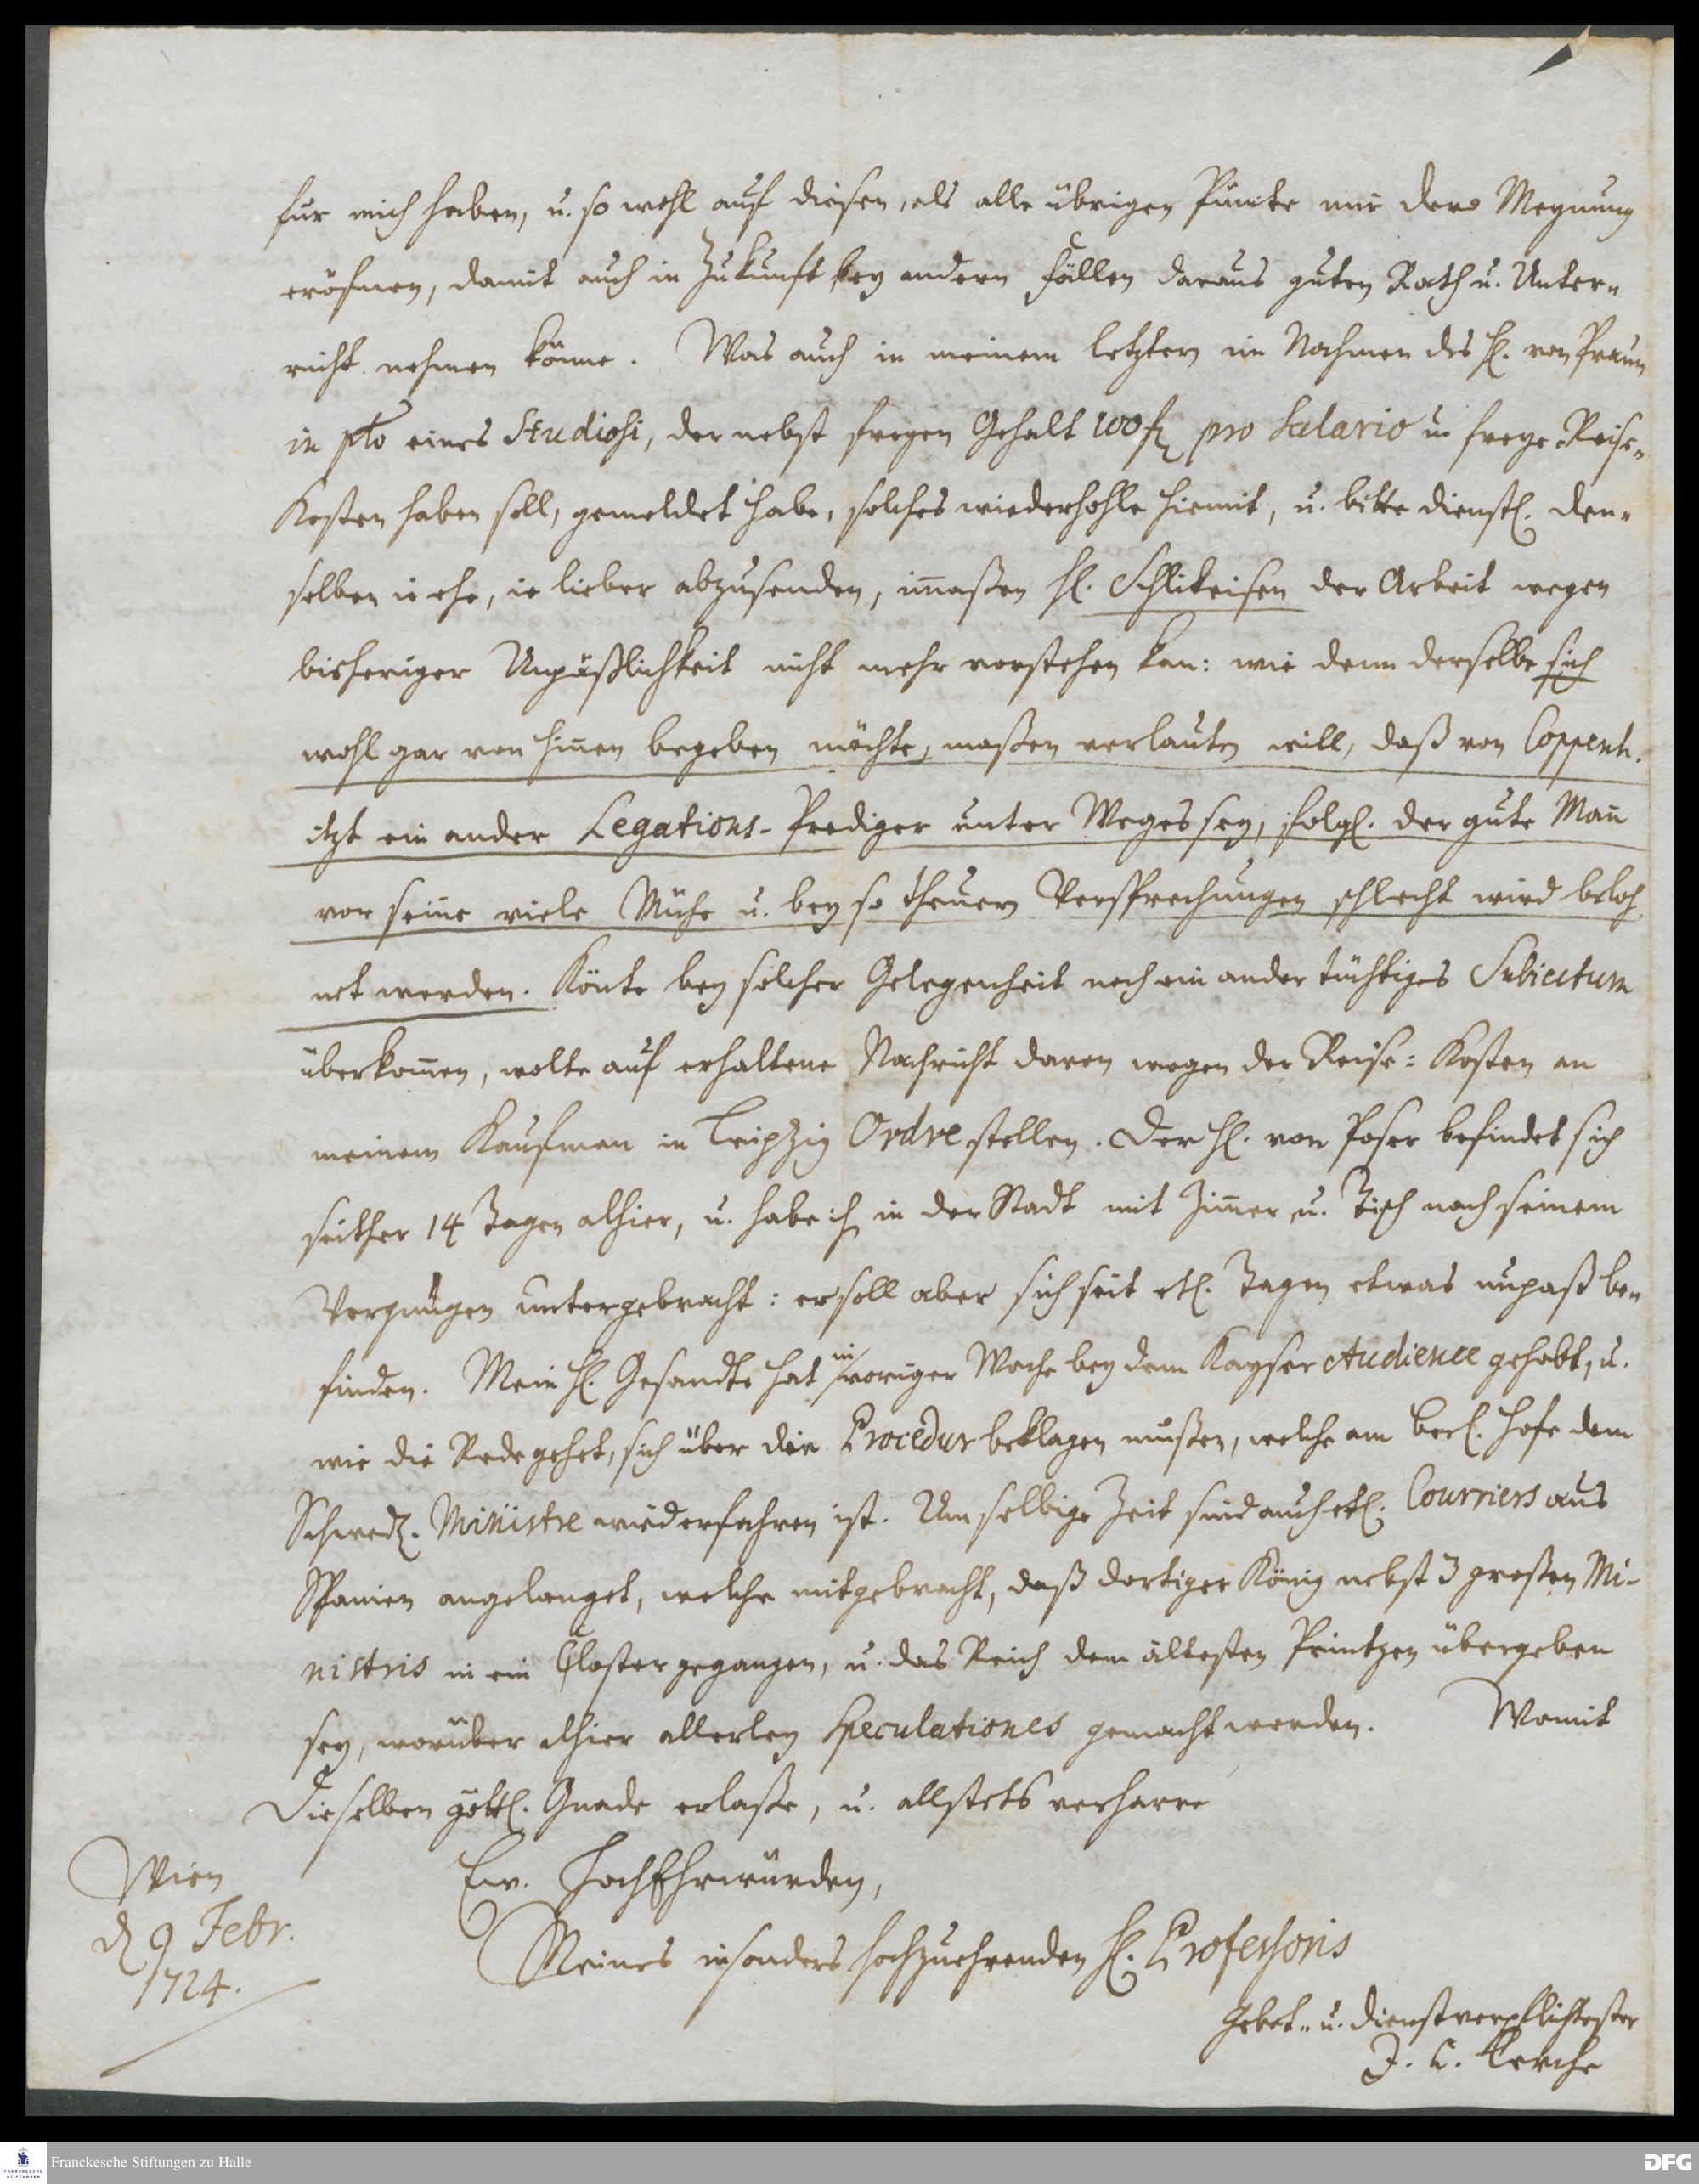 für mich haben, u. so wohl auf diesen, als alle übrigen Puncte mir dero Meynung
eröfnen, damit auch in Zukunft bey andern Fällen daraus guten Rath u. Unter-
richt nehmen könne. Was auch in meinem letztern im Nahmen des H. von Praun
in pto eines Studiosi, der nebst freyen Gehalt 100 f. pro Salario u. freye Reise-
Kosten haben soll, gemeldet habe, solches wiederhohle hiemit, u. bitte dienstl. den-
selben ie ehe, ie lieber abzusenden, im̃aßen H. Schlikeisen der Arbeit wegen
bisheriger Unpäßlichkeit nicht mehr vorstehen kan: wie denn derselbe sich
wohl gar von hin̄en begeben möchte, maßen verlauten will, daß von Coppenh.
itzt ein ander Legations-Prediger unter Weges sey, folgl. der gute Man̄
vor seine viele Mühe u. bey so theuern Versprechungen schlecht wird beloh
net werden. Könte bey solcher Gelegenheit noch ein ander tüchtiges Subiectum
überkom̄en, wolte auf erhaltene Nachricht davon wegen der Reise-Kosten an
meinem Kaufman in Leipzig Ordre stellen. Der H. von Poser befindet sich
seither 14 Tagen alhier, u. habe ich in der Stadt mit Zim̄er u. Tisch nach seinem
Vergnügen untergebracht: er soll aber sich seit etl. Tagen etwas unpaß be-
finden. Mein H. Gesandte hat in voriger Woche bey dem Kayser Audience gehabt, u.
wie die Rede gehet, sich über die Procedur beklagen müßen, welche am Berl. Hofe dem
Schwed. Ministre wiederfahren ist. Um selbige Zeit sind auch etl. Courriers aus
Spanien angelanget, welche mitgebracht, daß dortiger König nebst 3 großen Mi-
nistris in ein Closter gegangen, u. das Reich dem ältesten Printzen übergeben
sey, worüber alhier allerley Speculationes gemacht werden. Womit
Dieselben göttl. Gnade erlaße, u. allstets verharre
Ew. HochEhrwürden,
Meines insonders hochzuehrenden H. Professoris
Wien
d. 9 Febr.
1724.
Gebet- u. dienstverpflichtester
J. C. Lerche
Franckesche Stiftungen zu Halle
FRANCKESCHE STIFTUNGEN
DFG